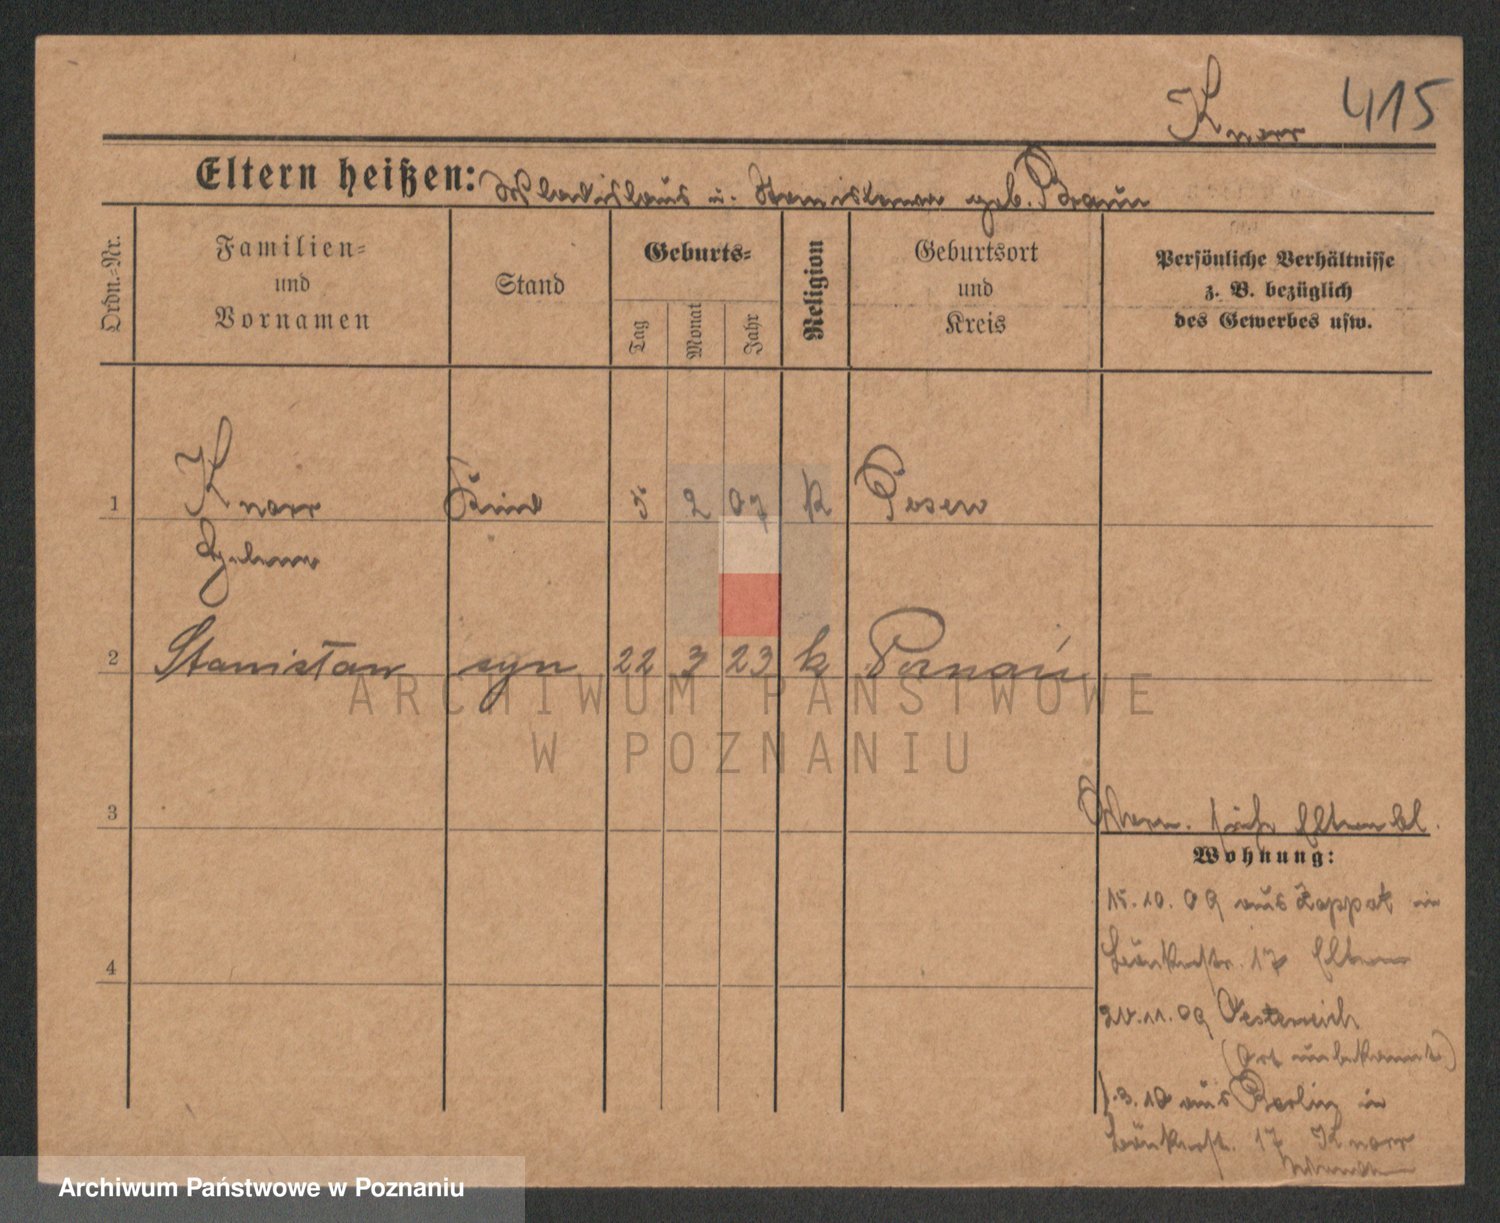 Knorr 415
Eltern heißen: Wladislaus u. Stanislawa geb. Braun
Ordn.-Nr.
Familien-
und
Vornamen
Stand
Geburts-
Tag
Monat
Jahr
Religion
Geburtsort
und
Kreis
Persönliche Verhältnisse
z. B. bezüglich
des Gewerbes usw.
1 Knorr Kind 5 2 07 k Posen
Helena
2 Stanisław syn 22 3 23 k Poznań
ARCHIWUM PAŃSTWOWE
W POZNANIU
3
siehe Elternbl.
Wohnung:
15.10.09 aus Zoppot in
17 Eltern
4
11.09 Oesterreich
(Ort unbekannt)
3.10 aus Berlin in
17 Knorr
Archiwum Państwowe w Poznaniu